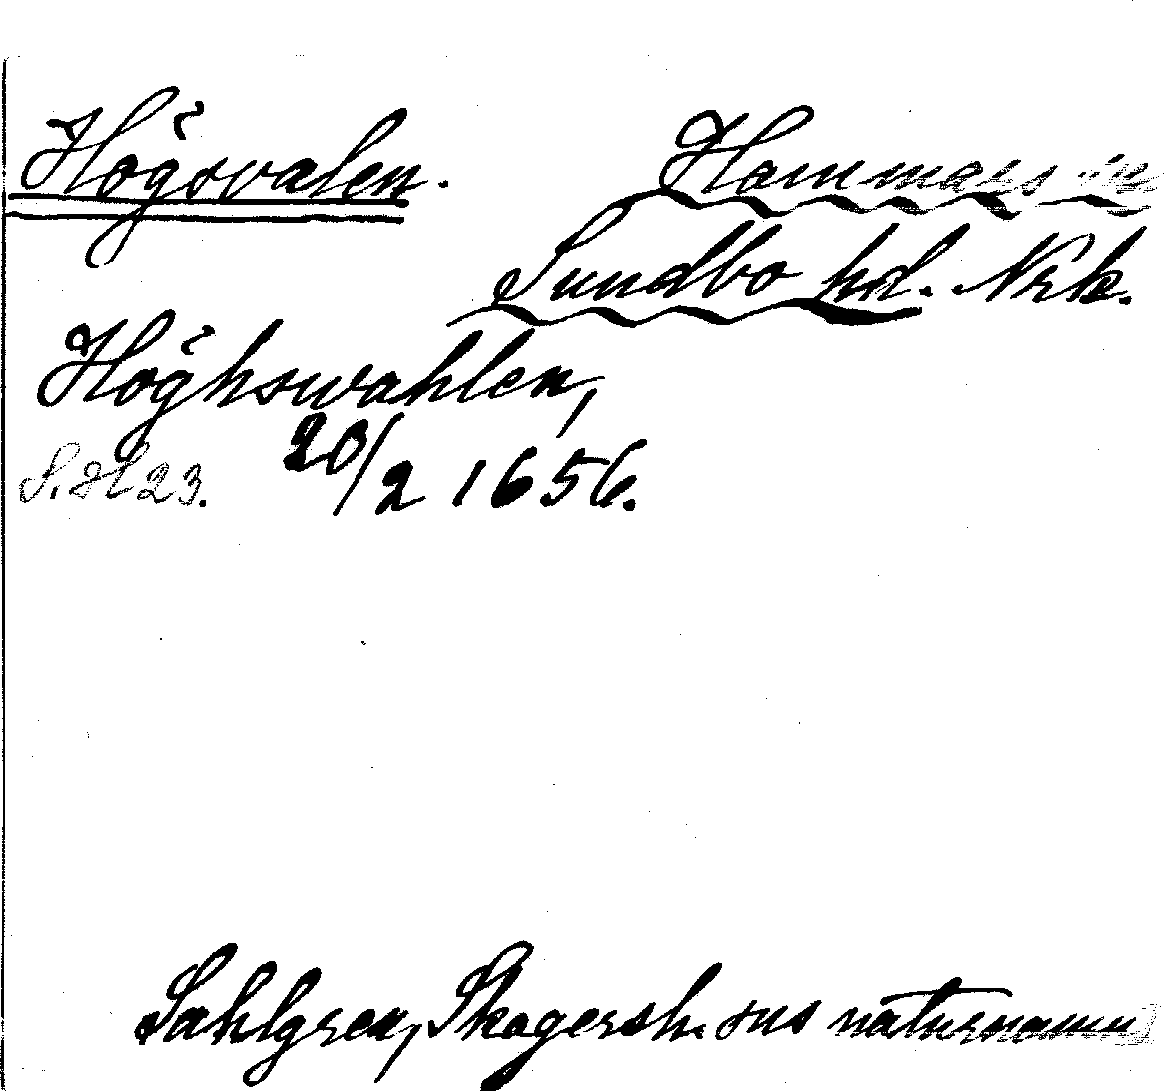 Högsvalen. Hammars sn
Sundbo hd. Nrk.
Höghswahlen,
S. H 23. 20/2 1656.
Sahlgren, Skagersh. sns naturnamn